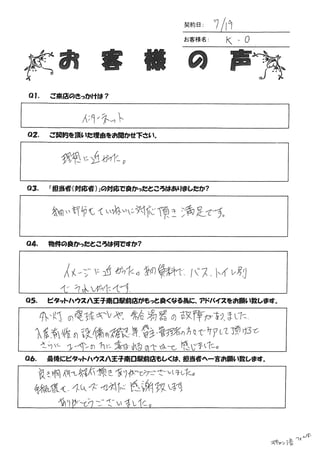 契約日: 7/19
お客様名: K.O
お客様の声
Q1. ご来店のきっかけは?
インターネット
Q2. ご契約を頂いた理由をお聞かせ下さい。
理想に近かった。
Q3. 「担当者(対応者)」の対応で良かったところはありましたか?
細い部分までていねいに対応頂き満足です。
Q4. 物件の良かったところは何ですか?
イメージに近かった。初期費用で、バス、トイレ別
でうれしかったです
Q5. ピタットハウス八王子南口駅前店がもっと良くなる為に、アドバイスをお願い致します。
外灯の電球ぎれや、給湯器の故障がありました
入居前に の設備の確認等、管理 の方で して頂けると
さらにユーザーの方に 感じました。
Q6. 最後にピタットハウス八王子南口駅前店もしくは、担当者へ一言お願い致します。
良き物件を紹介頂きありがとうございました。
手続き スムーズな対応 感謝致します
ありがとうございました。